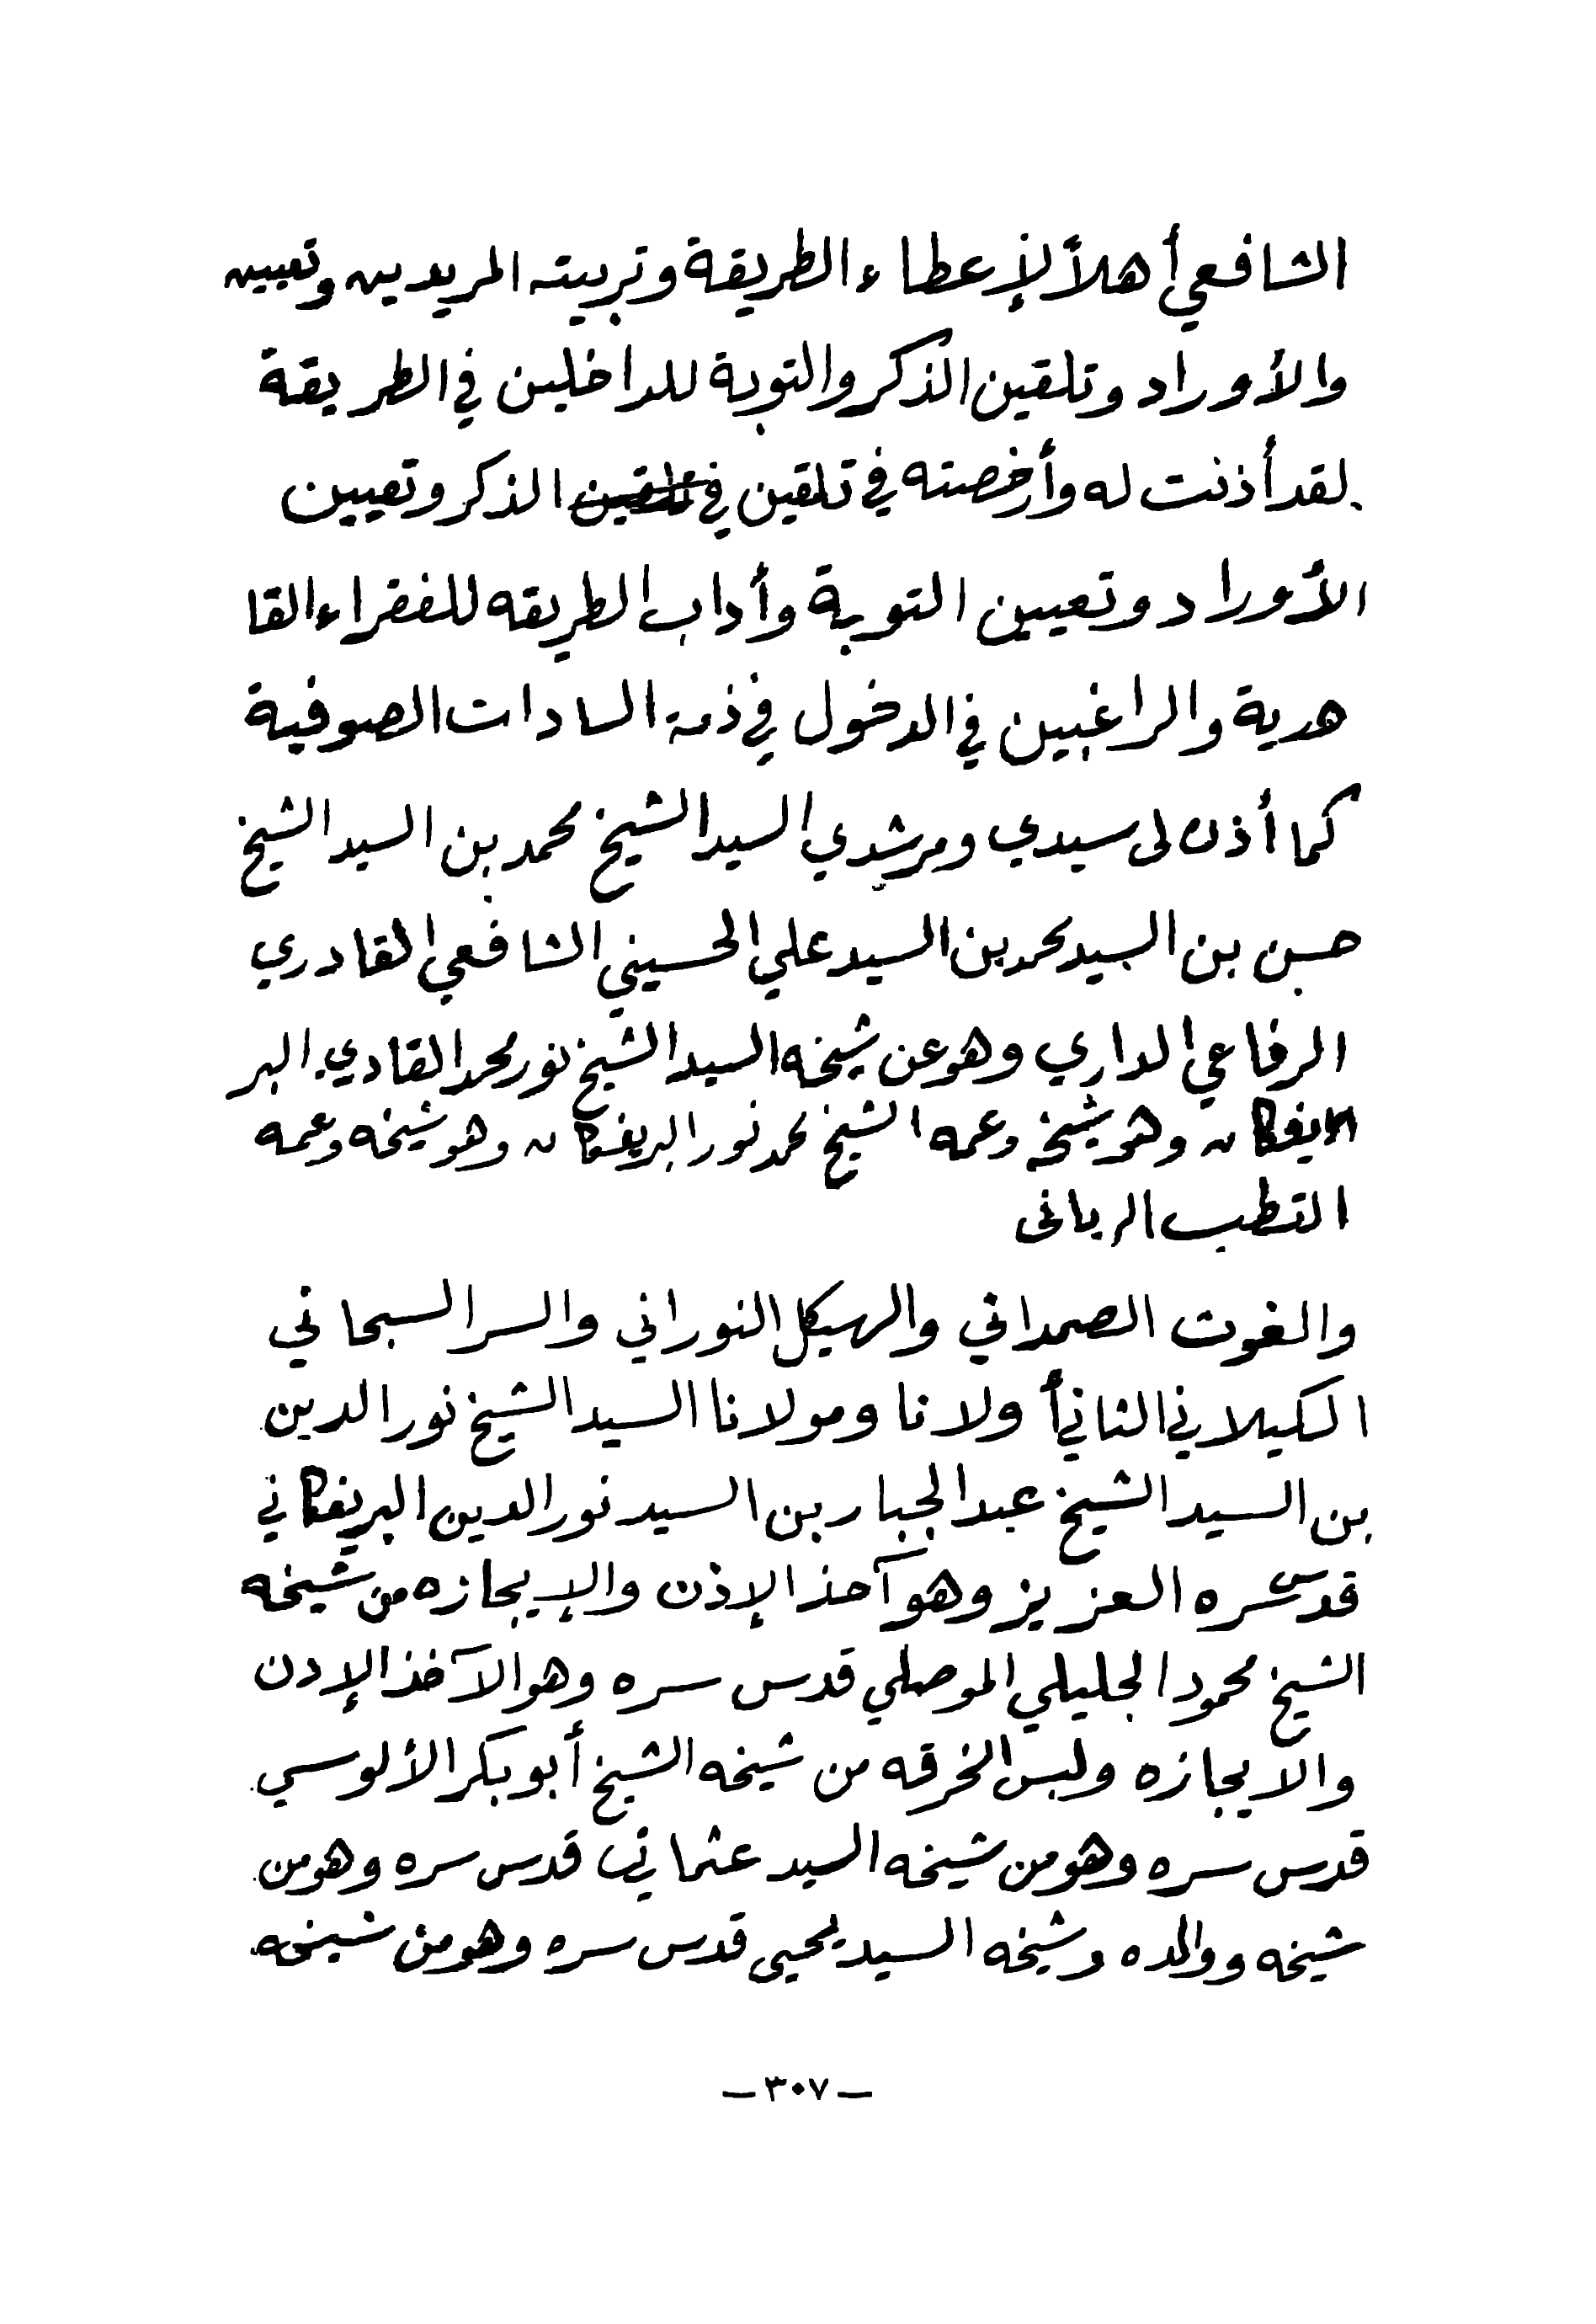 الشافعي أهلاً لإعطاء الطريقة وتربيته المريدين وتعيين
والأوراد وتلقين الذكر والتوبة للداخلين في الطريقة
لقد أذنت له وأرخصته في تلقين في تلقين الذكر وتعيين
الأوراد وتعيين التوبة وأداب الطريقه للفقراء القا
هدية والراغبين في الدخول في ذمة السادات الصوفية
كما أذن لى سيدي ومرشدي السيد الشيخ محمد بن السيد الشيخ
حسن بن السيد محمد بن السيد علي الحسيني الشافعي القادري
الرفاعي الداري وهو عن شيخه السيد الشيخ نور محمد القادي البر
وهو شيخه وعمه الشيخ محمد نور البريفكان وهو شيخه وعمه
القطب الربانى
والغوث الصمداني والهيكل النوراني والسر السبحاني
الكيلاني الثاني أولانا ومولانا السيد الشيخ نور الدين
بن السيد الشيخ عبد الجبار بن السيد نور الدين البريفكاني
قدس سره العزيز وهو آخذ الإذن والإيجازه من شيخه
الشيخ محمود الجليلي الموصلي قدس سره وهو الآخذ الإدن
والايجازه ولبس الخرقه من شيخه الشيخ أبو بكر الألوسي
قدس سره وهو من شيخه السيد عثمان قدس سره وهو من
شيخه ووالده وشيخه السيد يحيى قدس سره وهو من شيخه
— ٣٠٧ —